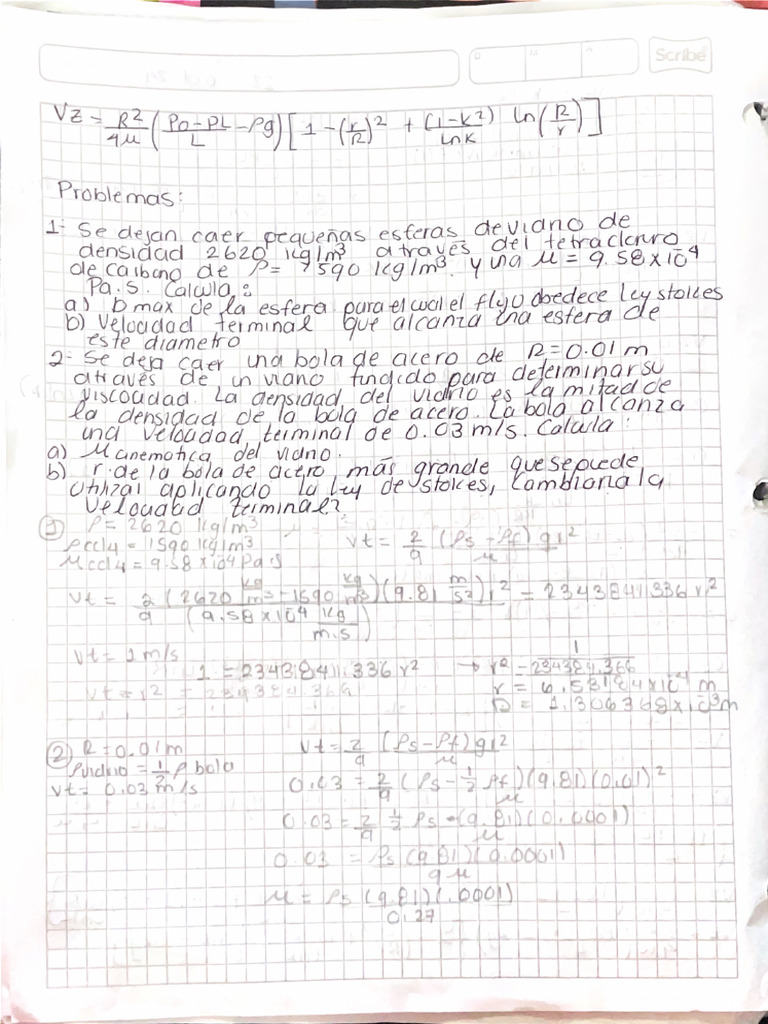 Scribe
D M A
Vz = R²/4μ (Po-PL/L - ρg) [1 - (r/R)² + (1-k²)/lnk ln(R/r)]
Problemas:
1- Se dejan caer pequeñas esferas de vidrio de
densidad 2620 kg/m³ a través del tetracloruro
de carbono de ρ= 1590 kg/m³. y una μ = 9.58x10⁻⁴
Pa.s. Calcula:
a) D max de la esfera para el cual el flujo obedece ley stokes
b) Velocidad terminal que alcanza una esfera de
este diametro
2- Se deja caer una bola de acero de R=0.01m
através de un vidrio fundido para determinar su
viscosidad. La densidad del vidrio es la mitad de
la densidad de la bola de acero. La bola alcanza
una velocidad terminal de 0.03 m/s. Calcula:
a) μ cinematica del vidrio.
b) r de la bola de acero más grande que se puede
utilizar aplicando la ley de stokes, Cambiaria la
velocidad terminal?
① ρ= 2620 kg/m³
ρccl4 = 1590 kg/m³
μccl4 = 9.58x10⁻⁴ Pa s
Vt = 2/9 (ρs - ρf) g r²/μ
Vt = 2/9 (2620 kg/m³ - 1590 kg/m³)(9.81 m/s²) r²/(9.58x10⁻⁴ kg/m.s) = 2343841.336 r²
Vt = 1 m/s
1 = 2343841.336 r² → r² = 1/
r = 6.53184x10⁻⁴ m
D = 1.306368x10⁻³m
② R = 0.01m
ρvidrio = ½ ρ bola
Vt = 0.03 m/s
Vt = 2/9 (ρs - ρf) g r²/μ
0.03 = 2/9 (ρs - ½ ρf)(9.81)(0.01)²/μ
0.03 = 2/9 ½ ρs (9.81)(0.0001)/μ
0.03 = ρs (9.81)(0.0001)/9μ
μ = ρs (9.81)(.0001)/0.27